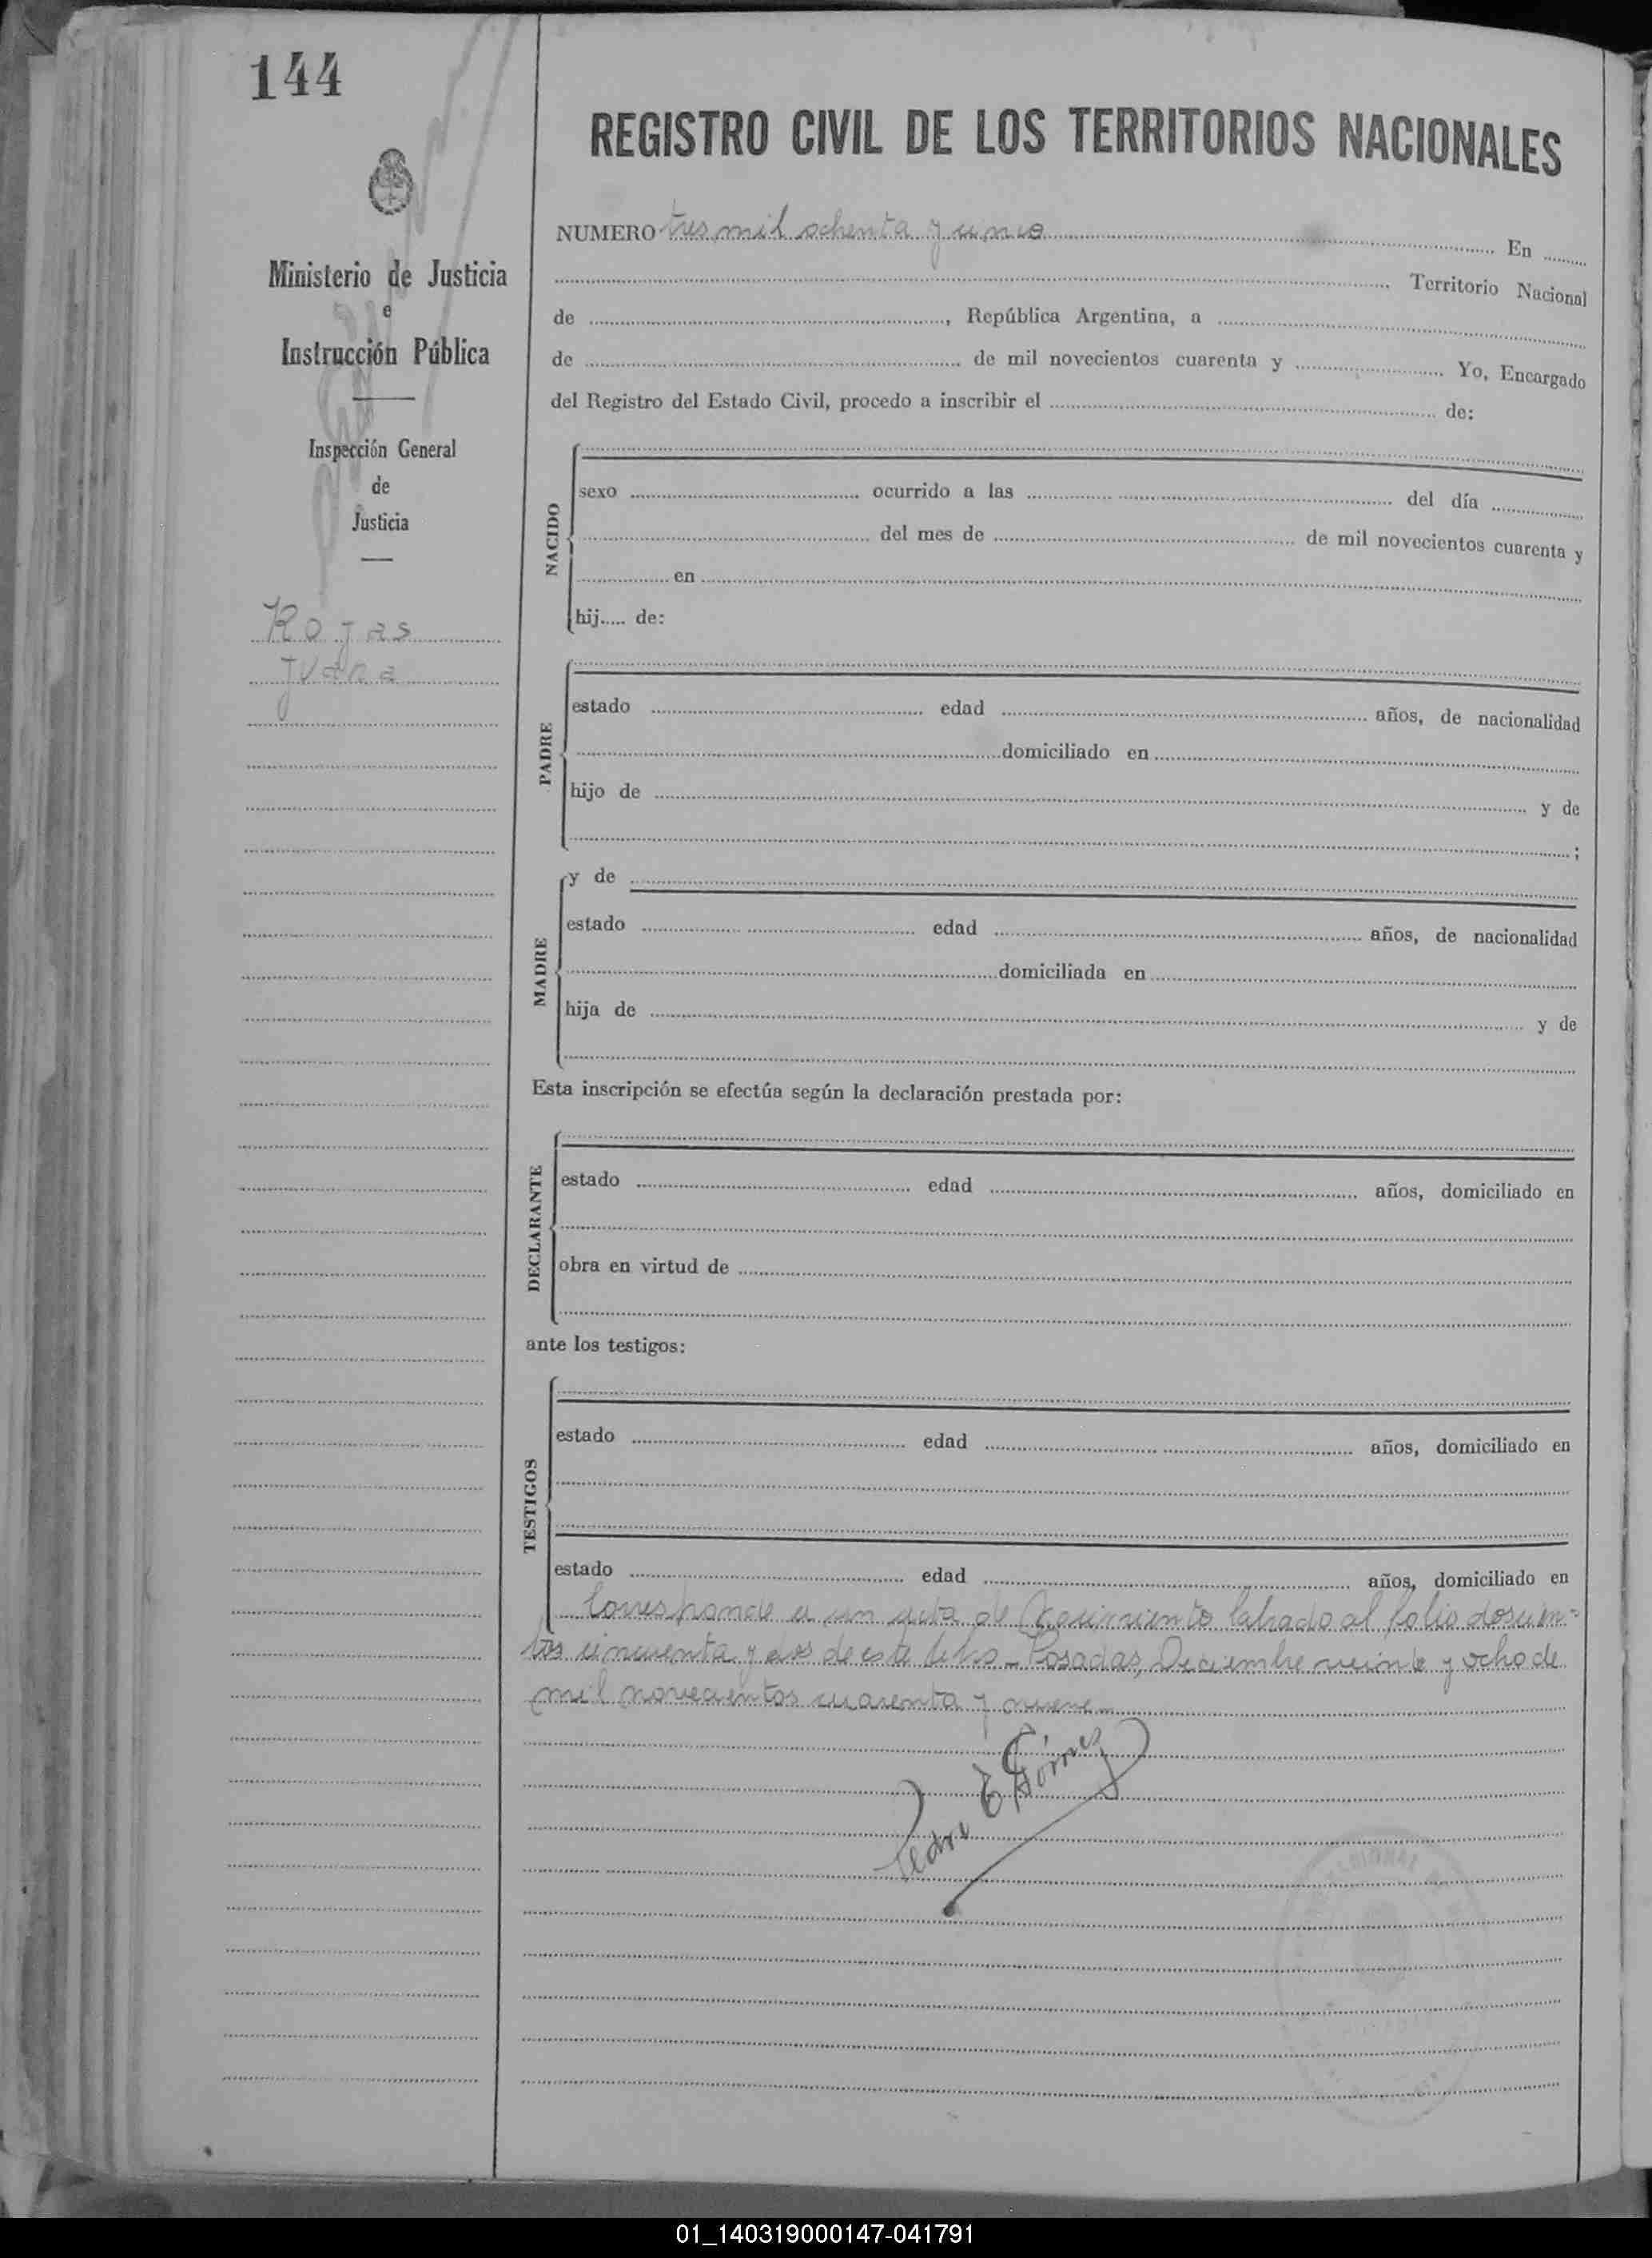 144
REGISTRO CIVIL DE LOS TERRITORIOS NACIONALES
Ministerio de Justicia
e
Instrucción Pública
Inspección General
de
Justicia
Rojas
Juana
NUMERO tres mil ochenta y uno En
Territorio Nacional
de , República Argentina, a
de de mil novecientos cuarenta y Yo, Encargado
del Registro del Estado Civil, procedo a inscribir el de:
NACIDO
sexo ocurrido a las del día
del mes de de mil novecientos cuarenta y
en
hij..... de:
PADRE
estado edad años, de nacionalidad
domiciliado en
hijo de y de
;
MADRE
y de
estado edad años, de nacionalidad
domiciliada en
hija de y de
Esta inscripción se efectúa según la declaración prestada por:
DECLARANTE
estado edad años, domiciliado en
obra en virtud de
ante los testigos:
TESTIGOS
estado edad años, domiciliado en
estado edad años, domiciliado en
Corresponde a un acta de nacimiento labrado al folio doscien=
tos cincuenta y dos de este libro - Posadas, Diciembre veinte y ocho de
mil novecientos cuarenta y nueve -
Pedro E Gómez
01_140319000147-041791